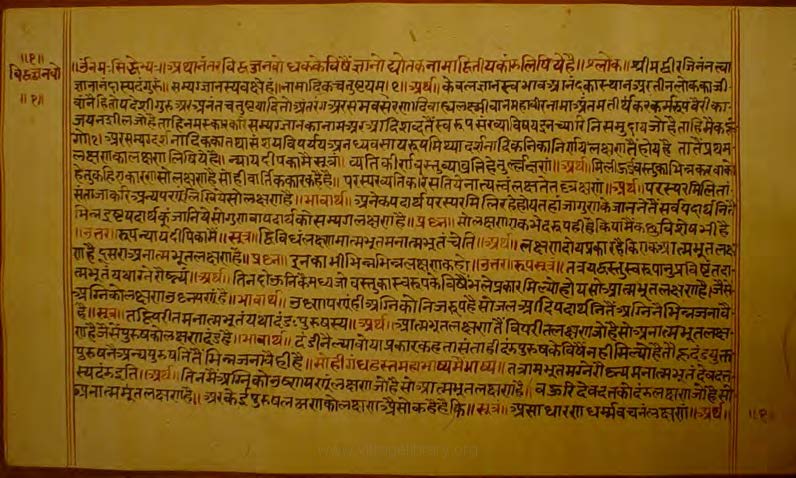 ॥१॥
विद्वज्जनबो
॥१॥
॥ॐनमःसिद्धेभ्यः॥अथानंतरविद्वज्जनबोधककेविषैंज्ञानोद्योतकनामाद्वितीयकांडलिषियेहै॥श्लोक॥श्रीमद्वीरजिनंनत्वा
ज्ञानानंदास्पदंगुरुं॥सम्यग्ज्ञानस्यवक्ष्येहं॥नामादिकचतुष्टयम्।१॥अर्थ॥केवलज्ञानस्वभावआनंदकास्थानअरतीनलोककाजी
वांनैहितोपदेशीगुरुअरअनंतचतुष्टयादितोअंतरंगअरसमवसरणादिबाह्यलक्ष्मीवानमहावीरनामाअंतमतीर्थकरकर्मरूपवैरीका
जयनशीलजोहैताहिनमस्कारकरि सम्यग्ज्ञानकानामअर
गो।१।अरसम्यग्दर्शनादिककातथासंशयविपर्यय अनध्यवसायरूपमिथ्यादर्शनादिकनिकानिर्णयलक्षणतैंहोयहै तातैंप्रथम
लक्षणकालक्षणलिषियेहै॥न्यायदीपकामैंसूत्र॥व्यतिकीर्णवस्तुव्यावृत्तिहेतुर्लक्षणं॥अर्थ॥मिलीहुईवस्तुकाभिन्नकरवाको
हेतुकहिएकारणसोलक्षणहैसोहीवार्त्तिककारकहैहै॥परस्परव्यतिकरेसतियेनान्यत्वंलक्ष्यतेतल्लक्षणं॥अर्थ॥परस्परमिलितां
संतांजाकरिअन्यपणालिषियेसोलक्षणहै॥भावार्थ॥अनेकपदार्थपरस्परमिलिरहेहोयतहांजागुणकेजाननेतैंसर्वपदार्थनितैं
भिन्नइष्टपदार्थकूंजानियेसोगुणवापदार्थकोसम्यगलक्षणहै॥प्रश्न॥सोलक्षणएकभेदरूपहीहैकियामैंकछुविशेषभीहै
॥उत्तर॥रूपन्यायदीपिकामैं॥सूत्र॥द्विविधंलक्षणमात्मभूतमनात्मभूतंचेति॥अर्थ॥लक्षणदोयप्रकारहैकिएकआत्मभूतलक्ष
णहैदूसराअनात्मभूतलक्षणहै॥प्रश्न॥इनकाभीभिन्नभिन्नलक्षणकहो॥उत्तर॥रूपसूत्र॥तत्रयद्वस्तुस्वरूपानुप्रविष्टंतदा
त्मभूतंयथाग्नेरौष्ण्यं॥अर्थ॥तिनदोऊनिकैमध्यजोवस्तुकास्वरूपकेविषैंभलेप्रकारमिल्योहोयसोआत्मभूतलक्षणहै।जैसे
अग्निकोलक्षणउष्णपणोहै॥भावार्थ॥उष्णपणांहीअग्निकोनिजरूपहैसोजलआदिपदार्थनितैंअग्निनैंभिन्नजनावै
है॥सूत्र॥तद्विपरीतमनात्मभूतंयथादंडःपुरुषस्य॥अर्थ॥आत्मभूतलक्षणतैंविपरीतलक्षणजोहैसोअनात्मभूतलक्ष
णहैजैसेंपुरुषकोलक्षणदंडहै॥भावार्थ॥दंडीनैंल्यावोयाप्रकारकहतांसंताहीदंडपुरुषकेविषैंनहीमिल्योहैतौहूदंडयुक्त
पुरुषनैंअन्यपुरुषनितैंभिन्नजनावैहीहै॥सोहीगंधहस्तमहाभाष्यमैंभाष्य॥तत्रात्मभूतमग्नेरौष्ण्यमनात्मभूतंदेवदत्त
स्यदंडइति॥अर्थ॥तिनमैंअग्निकोउष्णपणांलक्षणजोहैसोआत्मभूतलक्षणहै॥बहुरिदेवदत्तकोदंडलक्षणजोहैसो
अनात्मभूतलक्षणहै॥अरकेईपुरुषलक्षणकोलक्षणऐसोकहैहैकि॥सूत्र॥असाधारणधर्म्मवचनंलक्षणं॥अर्थ॥
॥१॥